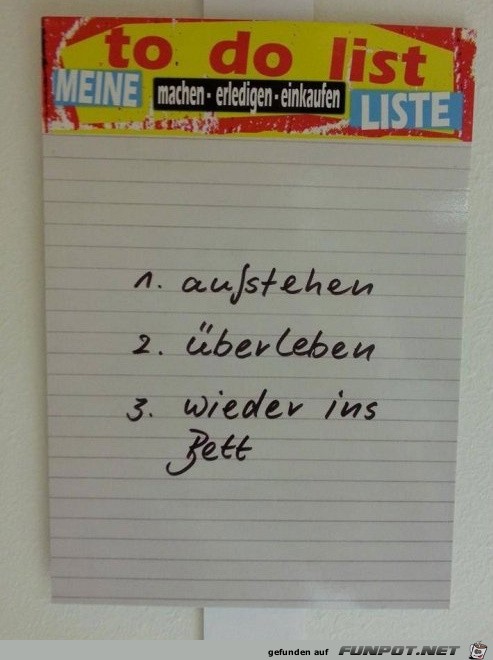 to do list
MEINE machen - erledigen - einkaufen LISTE
1. aufstehen
2. überleben
3. wieder ins
Bett
gefunden auf FUNPOT.NET